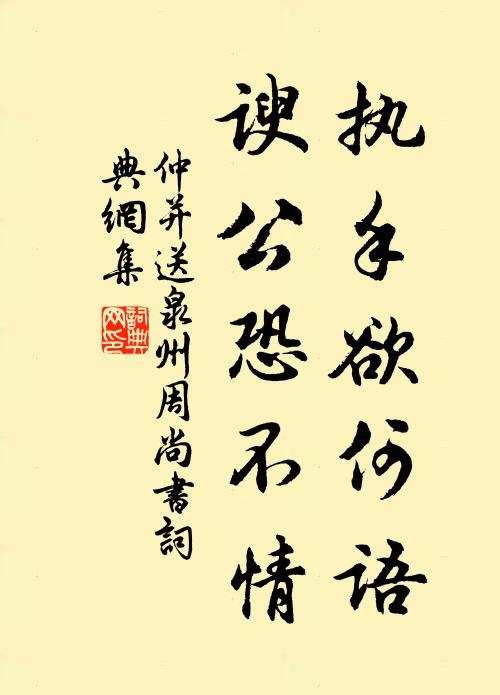 执手欲何语
谀公恐不情
仲并送泉州周尚書詞
典網集
詞典
网印